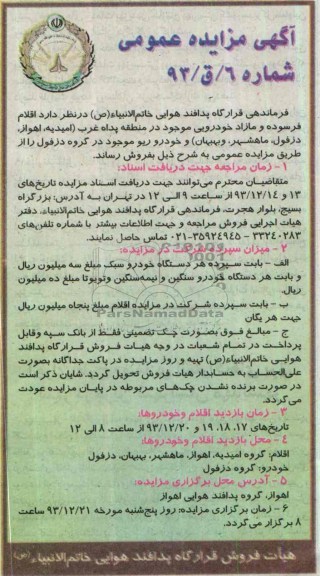 آگهی مزایده عمومی
شماره ۶/ق/۹۳
فرماندهی قرارگاه پدافند هوایی خاتم‌الانبیاء(ص) درنظر دارد اقلام
فرسوده و مازاد خودرویی موجود در منطقه پداه غرب (امیدیه، اهواز،
دزفول، ماهشهر، وبهبهان) و خودرو ریو موجود در گروه دزفول را از
طریق مزایده عمومی به شرح ذیل بفروش رساند.
۱- زمان مراجعه جهت دریافت اسناد:
متقاضیان محترم می‌توانند جهت دریافت اسناد مزایده تاریخ‌های
۱۳ و ۹۳/۱۲/۱۴ از ساعت ۹ الی ۱۲ در تهران به آدرس: بزرگراه
بسیج، بلوار هجرت، فرماندهی قرارگاه پدافند هوایی خاتم‌الانبیاء، دفتر
هیات اجرایی فروش مراجعه و جهت اطلاعات بیشتر با شماره تلفن‌های
۳۳۲۴۰۲۸۳ - ۳۵۹۲۴۹۴۵-۰۲۱ تماس حاصل نمایند.
۲ - میزان سپرده شرکت در مزایده:
الف - بابت سپرده هر دستگاه خودرو سبک مبلغ سه میلیون ریال
و بابت هر دستگاه خودرو سنگین و نیمه‌سنگین وتویوتا مبلغ ده میلیون
ریال.
ب - بابت سپرده شرکت در مزایده اقلام مبلغ پنجاه میلیون ریال
جهت هر یگان
ParsNamadData
ج - مبالغ فوق بصورت چک تضمینی فقط از بانک سپه وقابل
پرداخت در تمام شعبات در وجه هیات فروش قرارگاه پدافند
هوایی خاتم‌الانبیاء(ص) تهیه و روز مزایده در پاکت جداگانه بصورت
علی‌الحساب به حسابدار هیات فروش تحویل گردد. شایان ذکر است
در صورت برنده نشدن چک‌های مربوطه در پایان مزایده عودت
می‌گردد.
۳ - زمان بازدید اقلام وخودروها:
تاریخ‌های ۱۷، ۱۸، ۱۹ و ۹۳/۱۲/۲۰ از ساعت ۸ الی ۱۲
۴ - محل بازدید اقلام وخودروها:
اقلام: گروه امیدیه، اهواز، ماهشهر، بهبهان، دزفول
خودرو: گروه دزفول
۵ - آدرس محل برگزاری مزایده:
اهواز، گروه پدافند هوایی اهواز
۶ - زمان برگزاری مزایده: روز پنج‌شنبه مورخه ۹۳/۱۲/۲۱ ساعت
۸ برگزار می‌گردد.
هیأت فروش قرارگاه پدافند هوایی خاتم‌الانبیاء (ص)